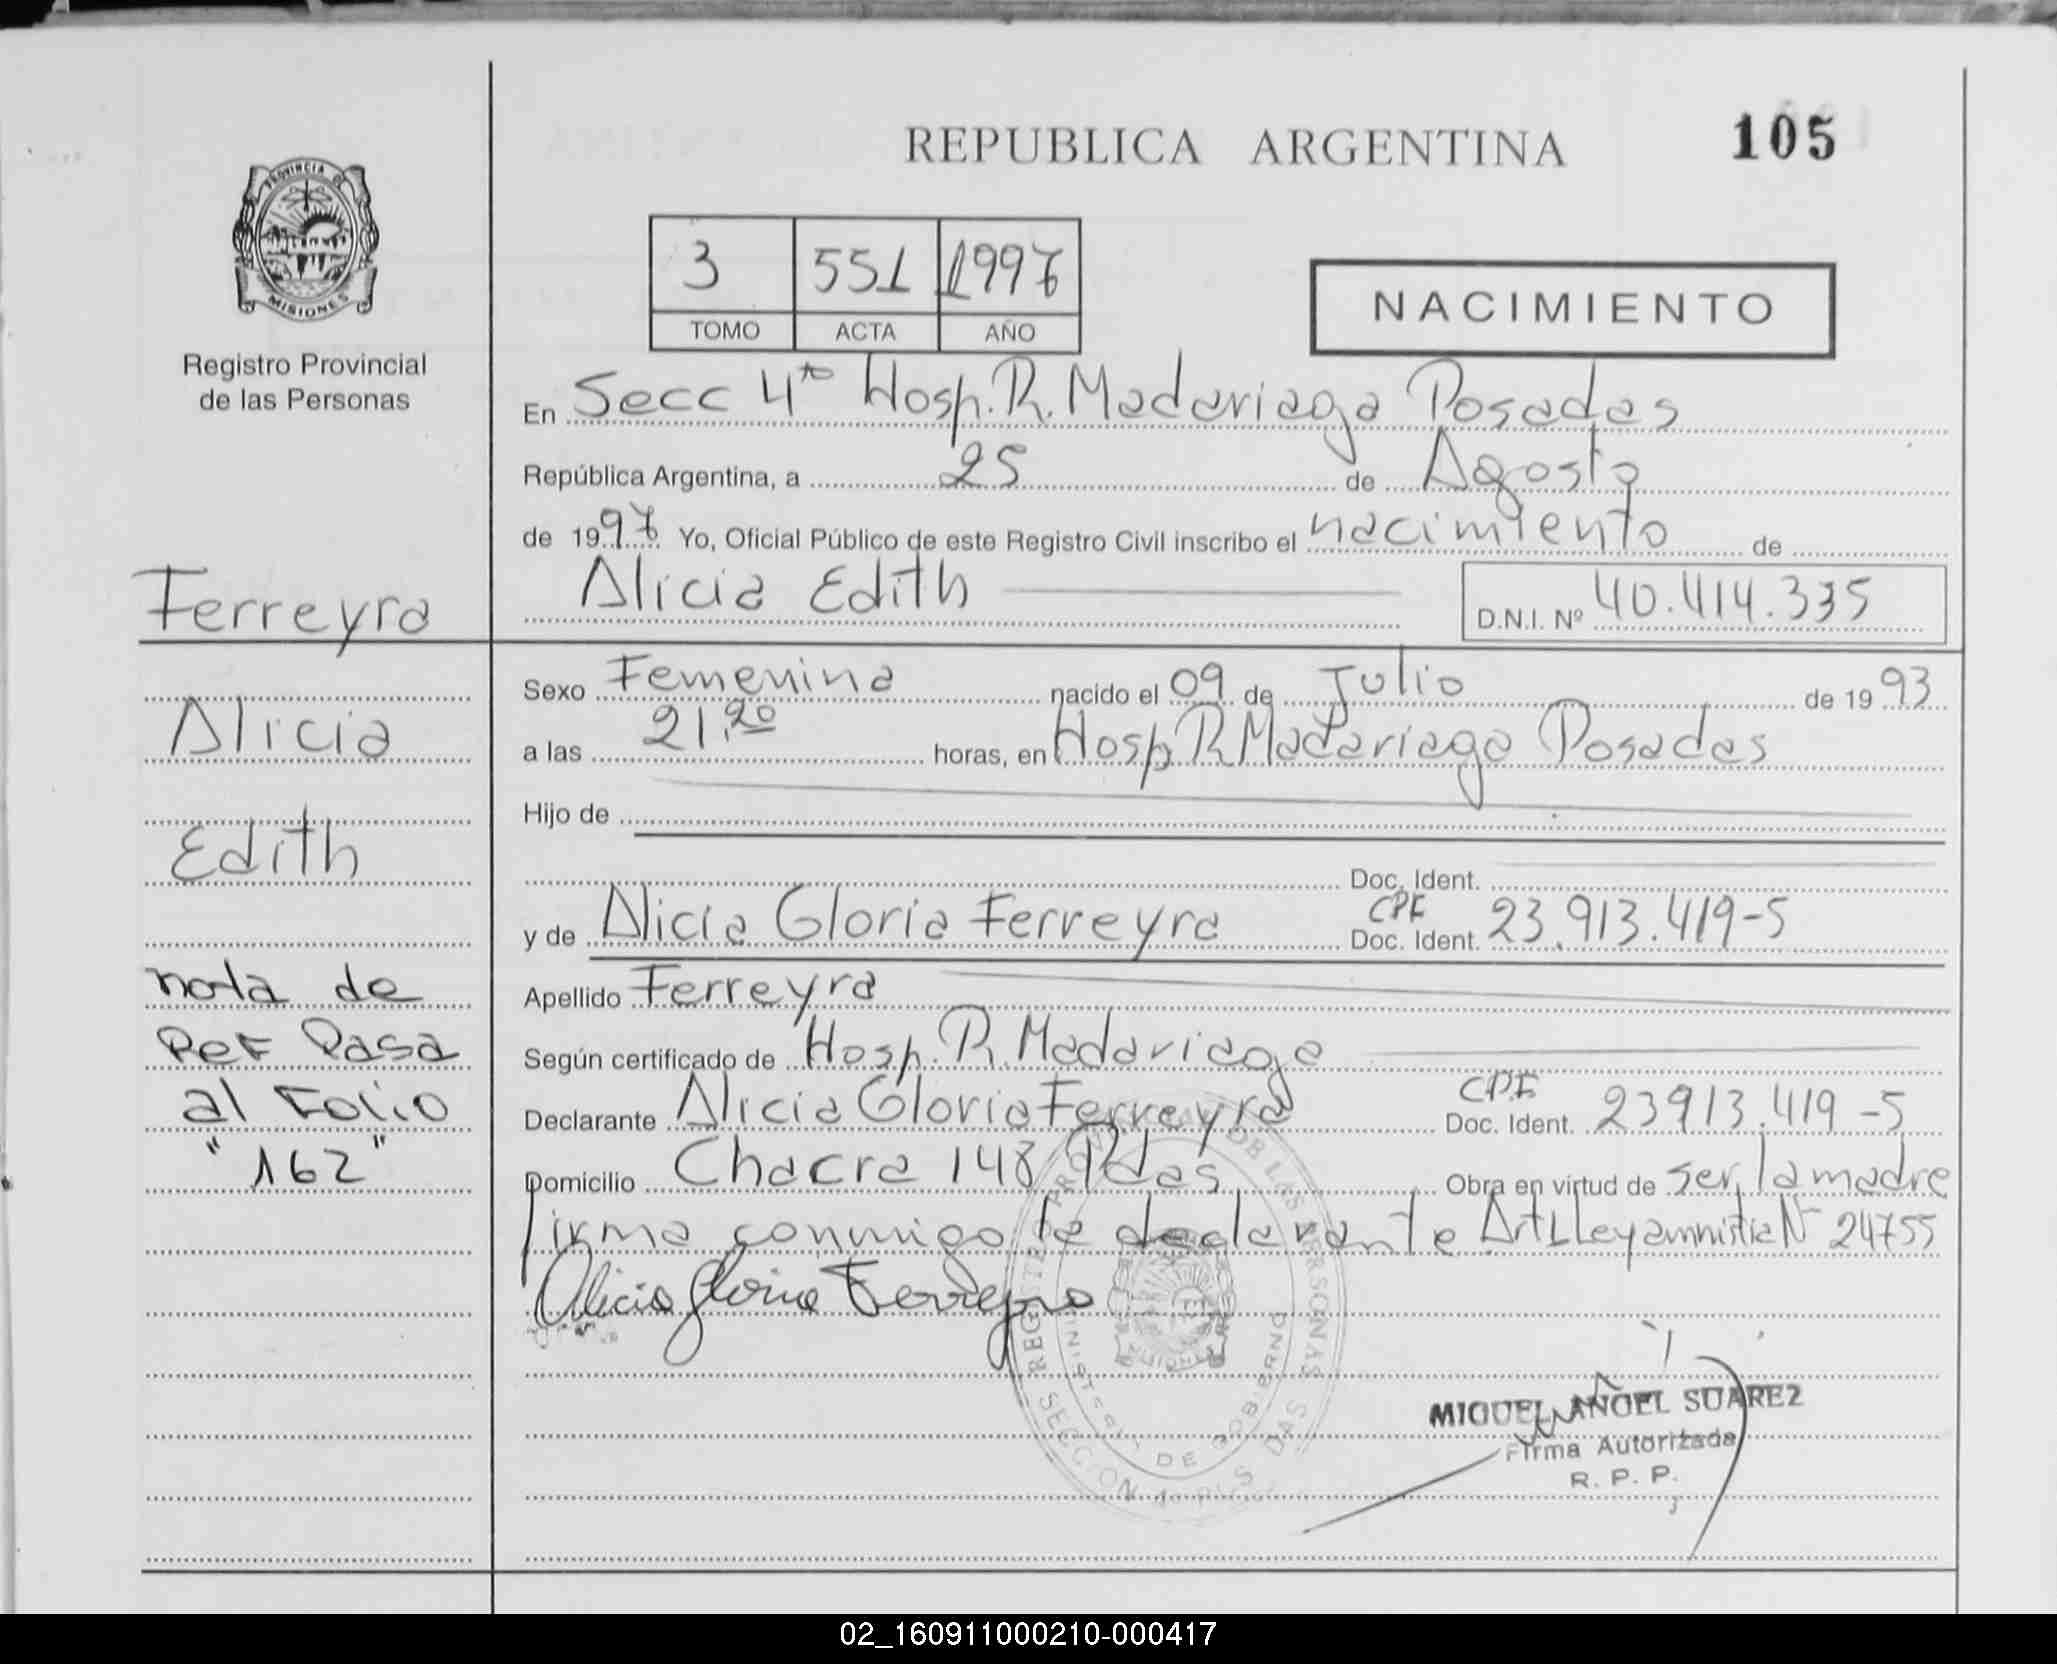 REPUBLICA ARGENTINA
105
PROVINCIA DE
MISIONES
Registro Provincial
de las Personas
3 551 1997
TOMO ACTA AÑO
NACIMIENTO
En Secc 4ta Hosp. R. Madariaga Posadas
República Argentina, a 25 de Agosto
de 1997 Yo, Oficial Público de este Registro Civil inscribo el nacimiento de
Alicia Edith
D.N.I. Nº 40.414.335
Ferreyra
Alicia
Edith
nota de
Ref Pasa
al Folio
"162"
Sexo Femenina nacido el 09 de Julio de 1993
a las 21,20 horas, en Hosp R Madariaga Posadas
Hijo de
Doc. Ident.
y de Alicia Gloria Ferreyra CPF Doc. Ident. 23.913.419-5
Apellido Ferreyra
Según certificado de Hosp. R. Madariaga
Declarante Alicia Gloria Ferreyra CPF Doc. Ident. 23913.419-5
Domicilio Chacra 148 Pdas Obra en virtud de ser la madre
firma conmigo la declarante Art 1 Ley amnistia Nº 24755
Alicia Gloria Ferreyra
REGISTRO PROVINCIAL DE LAS PERSONAS
MINISTERIO DE GOBIERNO
SECCION 4ª POSADAS
MIGUEL ANGEL SUAREZ
Firma Autorizada
R. P. P.
02_160911000210-000417